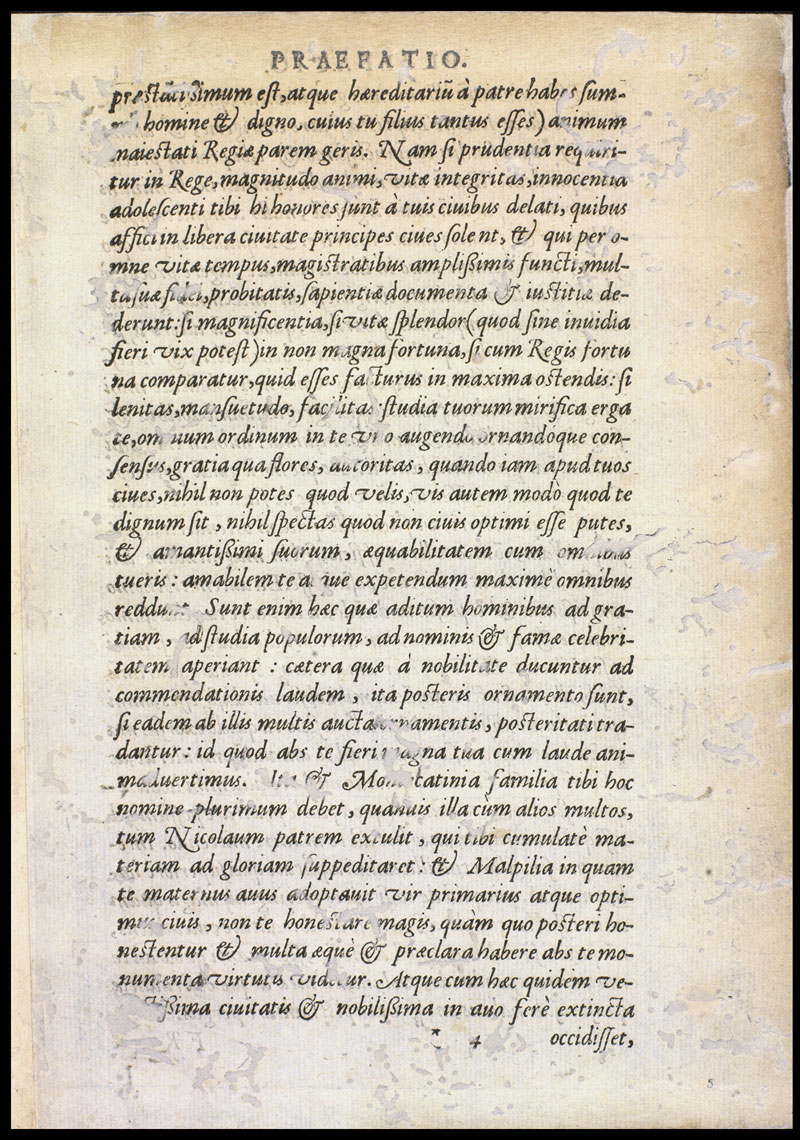 PRAEFATIO.
est, atque hæreditariũ à patre habes sum-
homine & digno, cuius tu filius tantus esses) animum
maiestati Regiæ parem geris. Nam si prudentia requiri-
tur in Rege, magnitudo animi, vitæ integritas, innocentia
adolescenti tibi hi honores sunt à tuis ciuibus delati, quibus
affici in libera ciuitate principes ciues solent, & qui per o-
mne vitæ tempus, magistratibus amplißimis functi, mul-
ta suæ fidei, probitatis, sapientiæ documenta & iustitiæ de-
derunt: si magnificentia, si vitæ splendor (quod sine inuidia
fieri vix potest) in non magna fortuna, si cum Regis fortu
na comparatur, quid esses facturus in maxima ostendis: si
lenitas, mansuetudo, facilitas studia tuorum mirifica erga
te, omnium ordinum in te augendo ornandoque con-
sensus, gratia qua flores, autoritas, quando iam apud tuos
ciues, nihil non potes quod velis, vis autem modò quod te
dignum sit, nihil spectas quod non ciuis optimi esse putes,
& amantißimi suorum, æquabilitatem cum omnibus
tueris: amabilem te atque expetendum maximè omnibus
Sunt enim hæc quæ aditum hominibus ad gra-
tiam, ad studia populorum, ad nominis & famæ celebri-
tatem aperiant: cætera quæ à nobilitate ducuntur ad
commendationis laudem, ita posteris ornamento sunt,
si eadem ab illis multis aucta ornamentis, posteritati tra-
dantur: id quod abs te fieri magna tua cum laude ani-
maduertimus. & familia tibi hoc
nomine plurimum debet, quamuis illa cùm alios multos,
tum Nicolaum patrem extulit, qui tibi cumulatè ma-
teriam ad gloriam suppeditaret: & Malpilia in quam
te maternus auus adoptauit vir primarius atque opti-
mus ciuis, non te honestare magis, quàm quo posteri ho-
nestentur & multa æquè & præclara habere abs te mo-
numenta virtutis videtur. Atque cum hæc quidem ve-
ciuitatis & nobilißima in auo ferè extincta
* 4 occidisset,
5